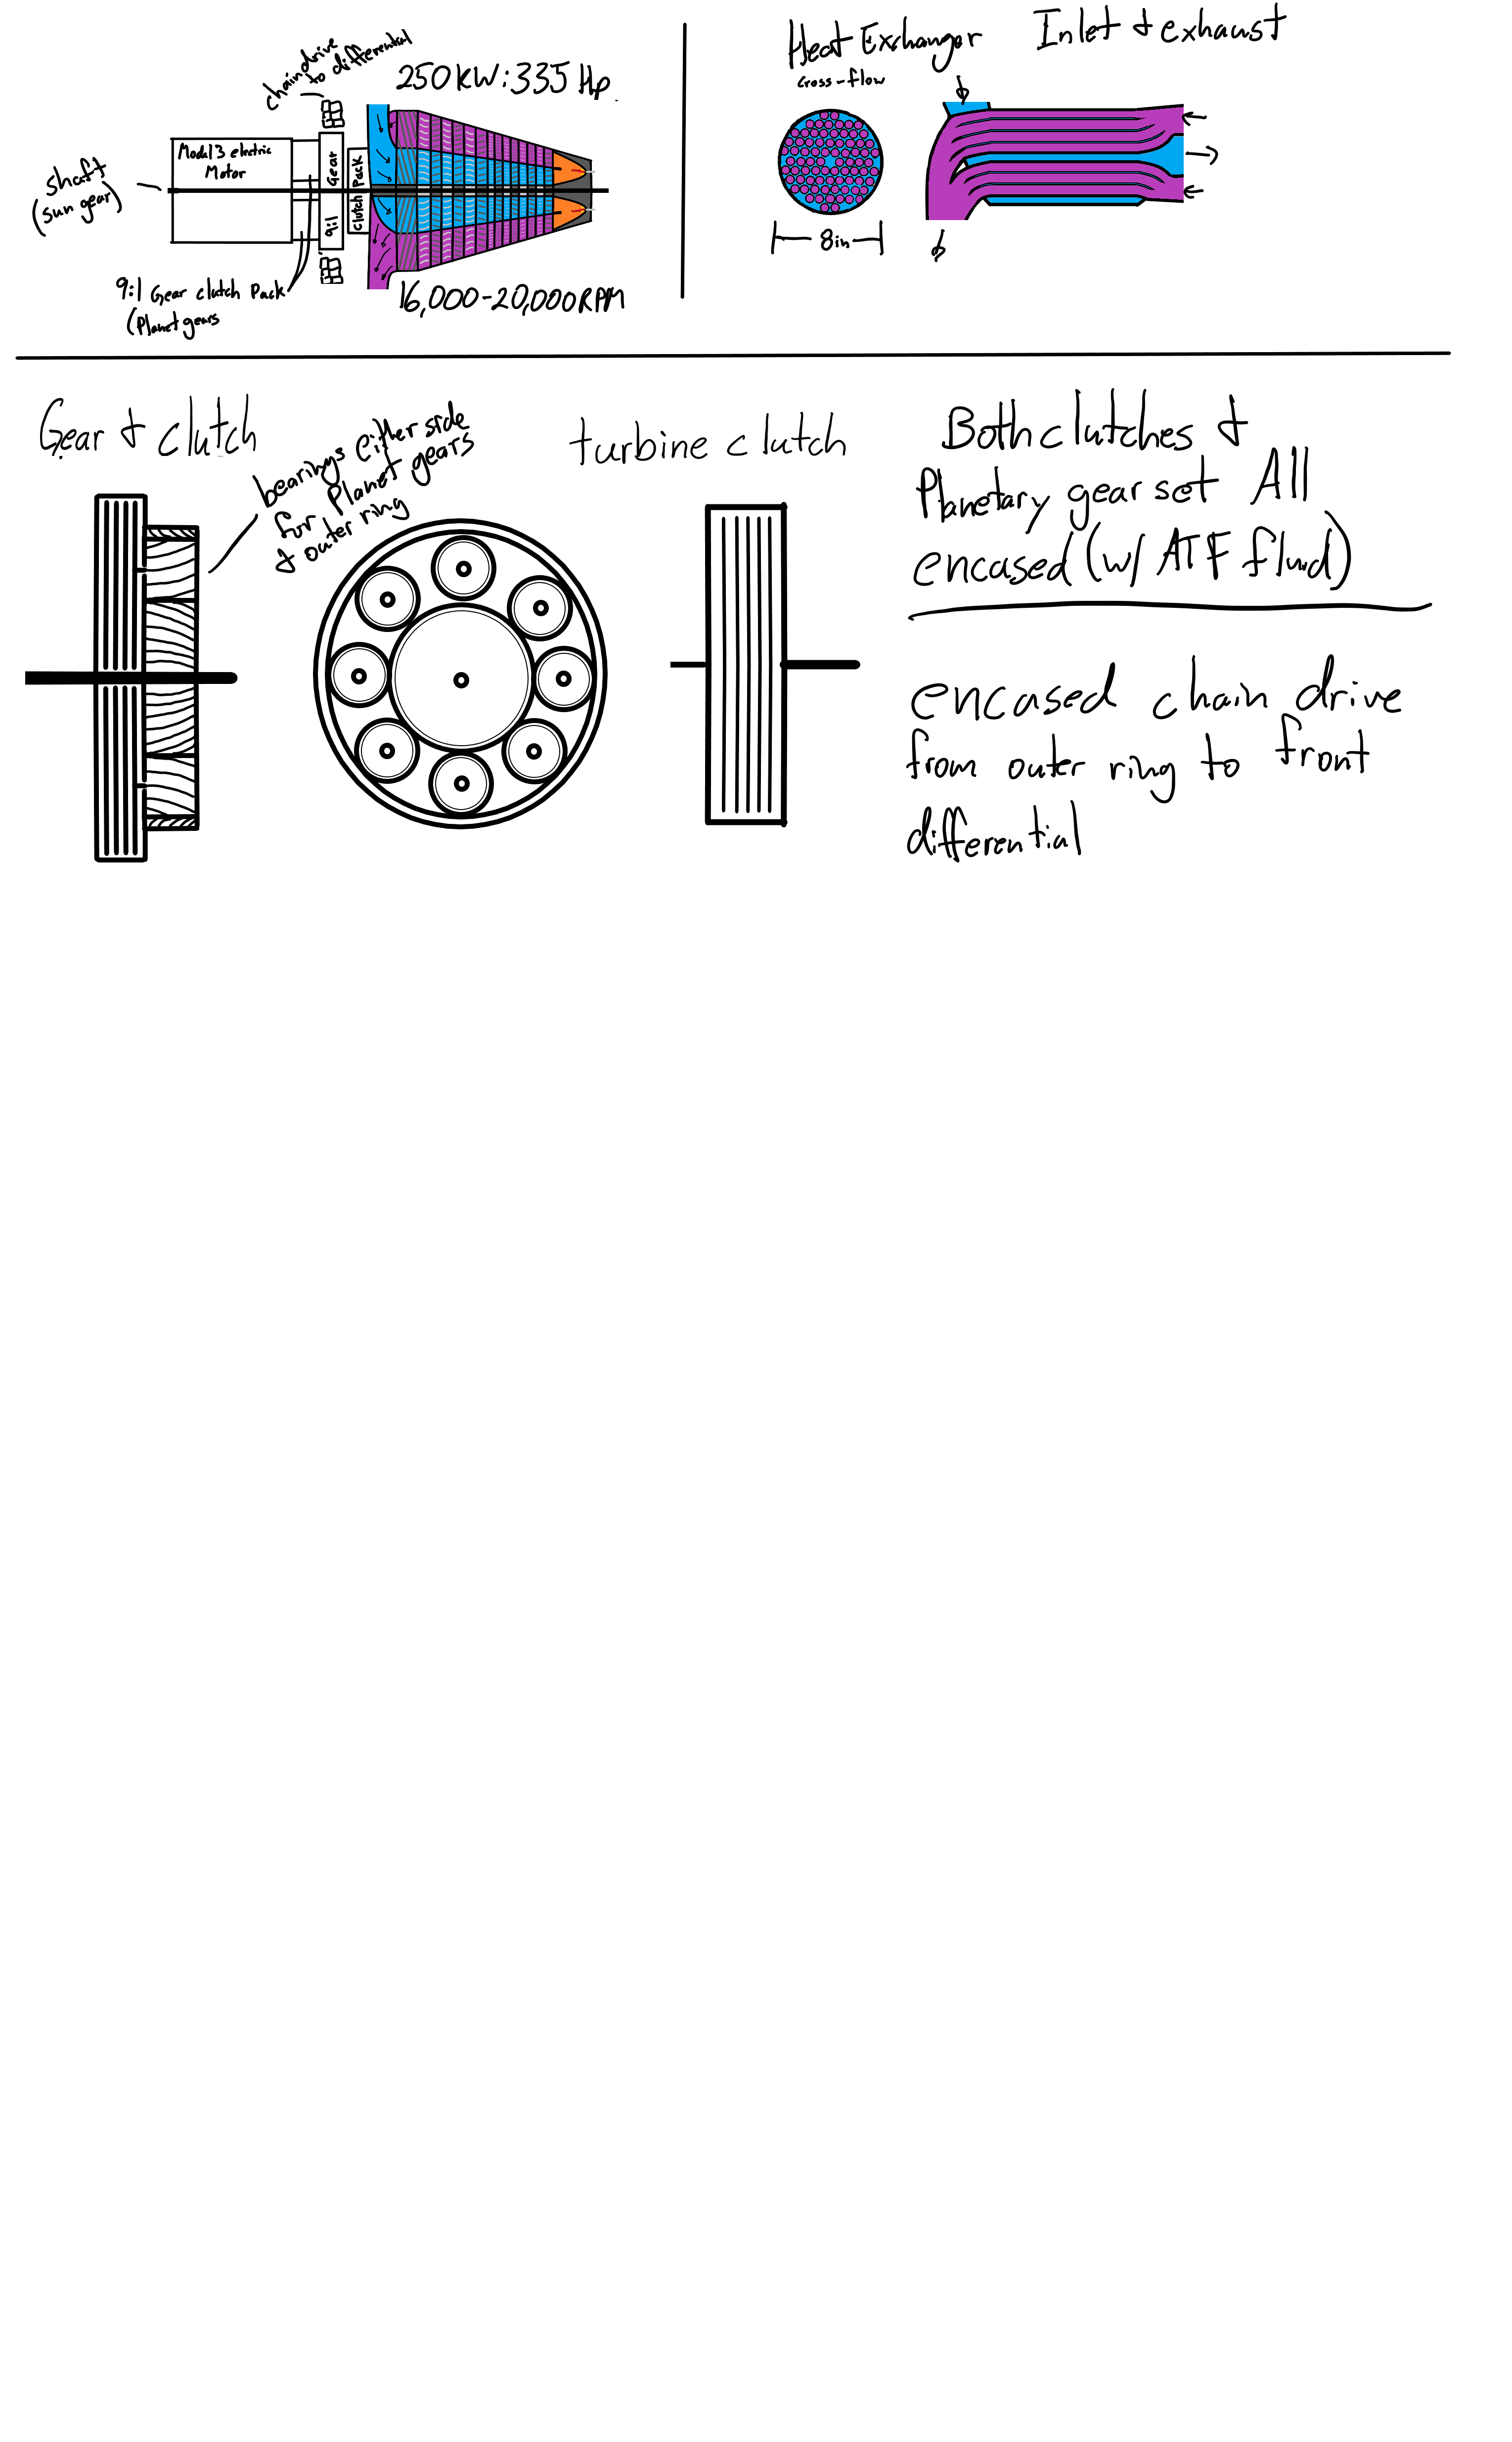 chain drive
to differential
250 KW : 335 Hp.
shaft
(sun gear)
Model 3 electric
Motor
Gear
9:1
Pack
Clutch
9:1 Gear clutch Pack
(Planet gears
16,000-20,000 RPM
Heat Exchanger
cross-flow
8in
Inlet & exhaust
Gear & clutch
bearings either side
for Planet gears
& outer ring
turbine clutch
Both clutches &
Planetary gear set All
encased (w/ ATF fluid)
encased chain drive
from outer ring to front
differential